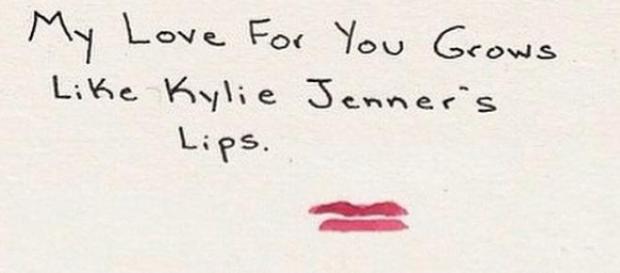 My Love For You Grows
Like Kylie Jenner's
Lips.